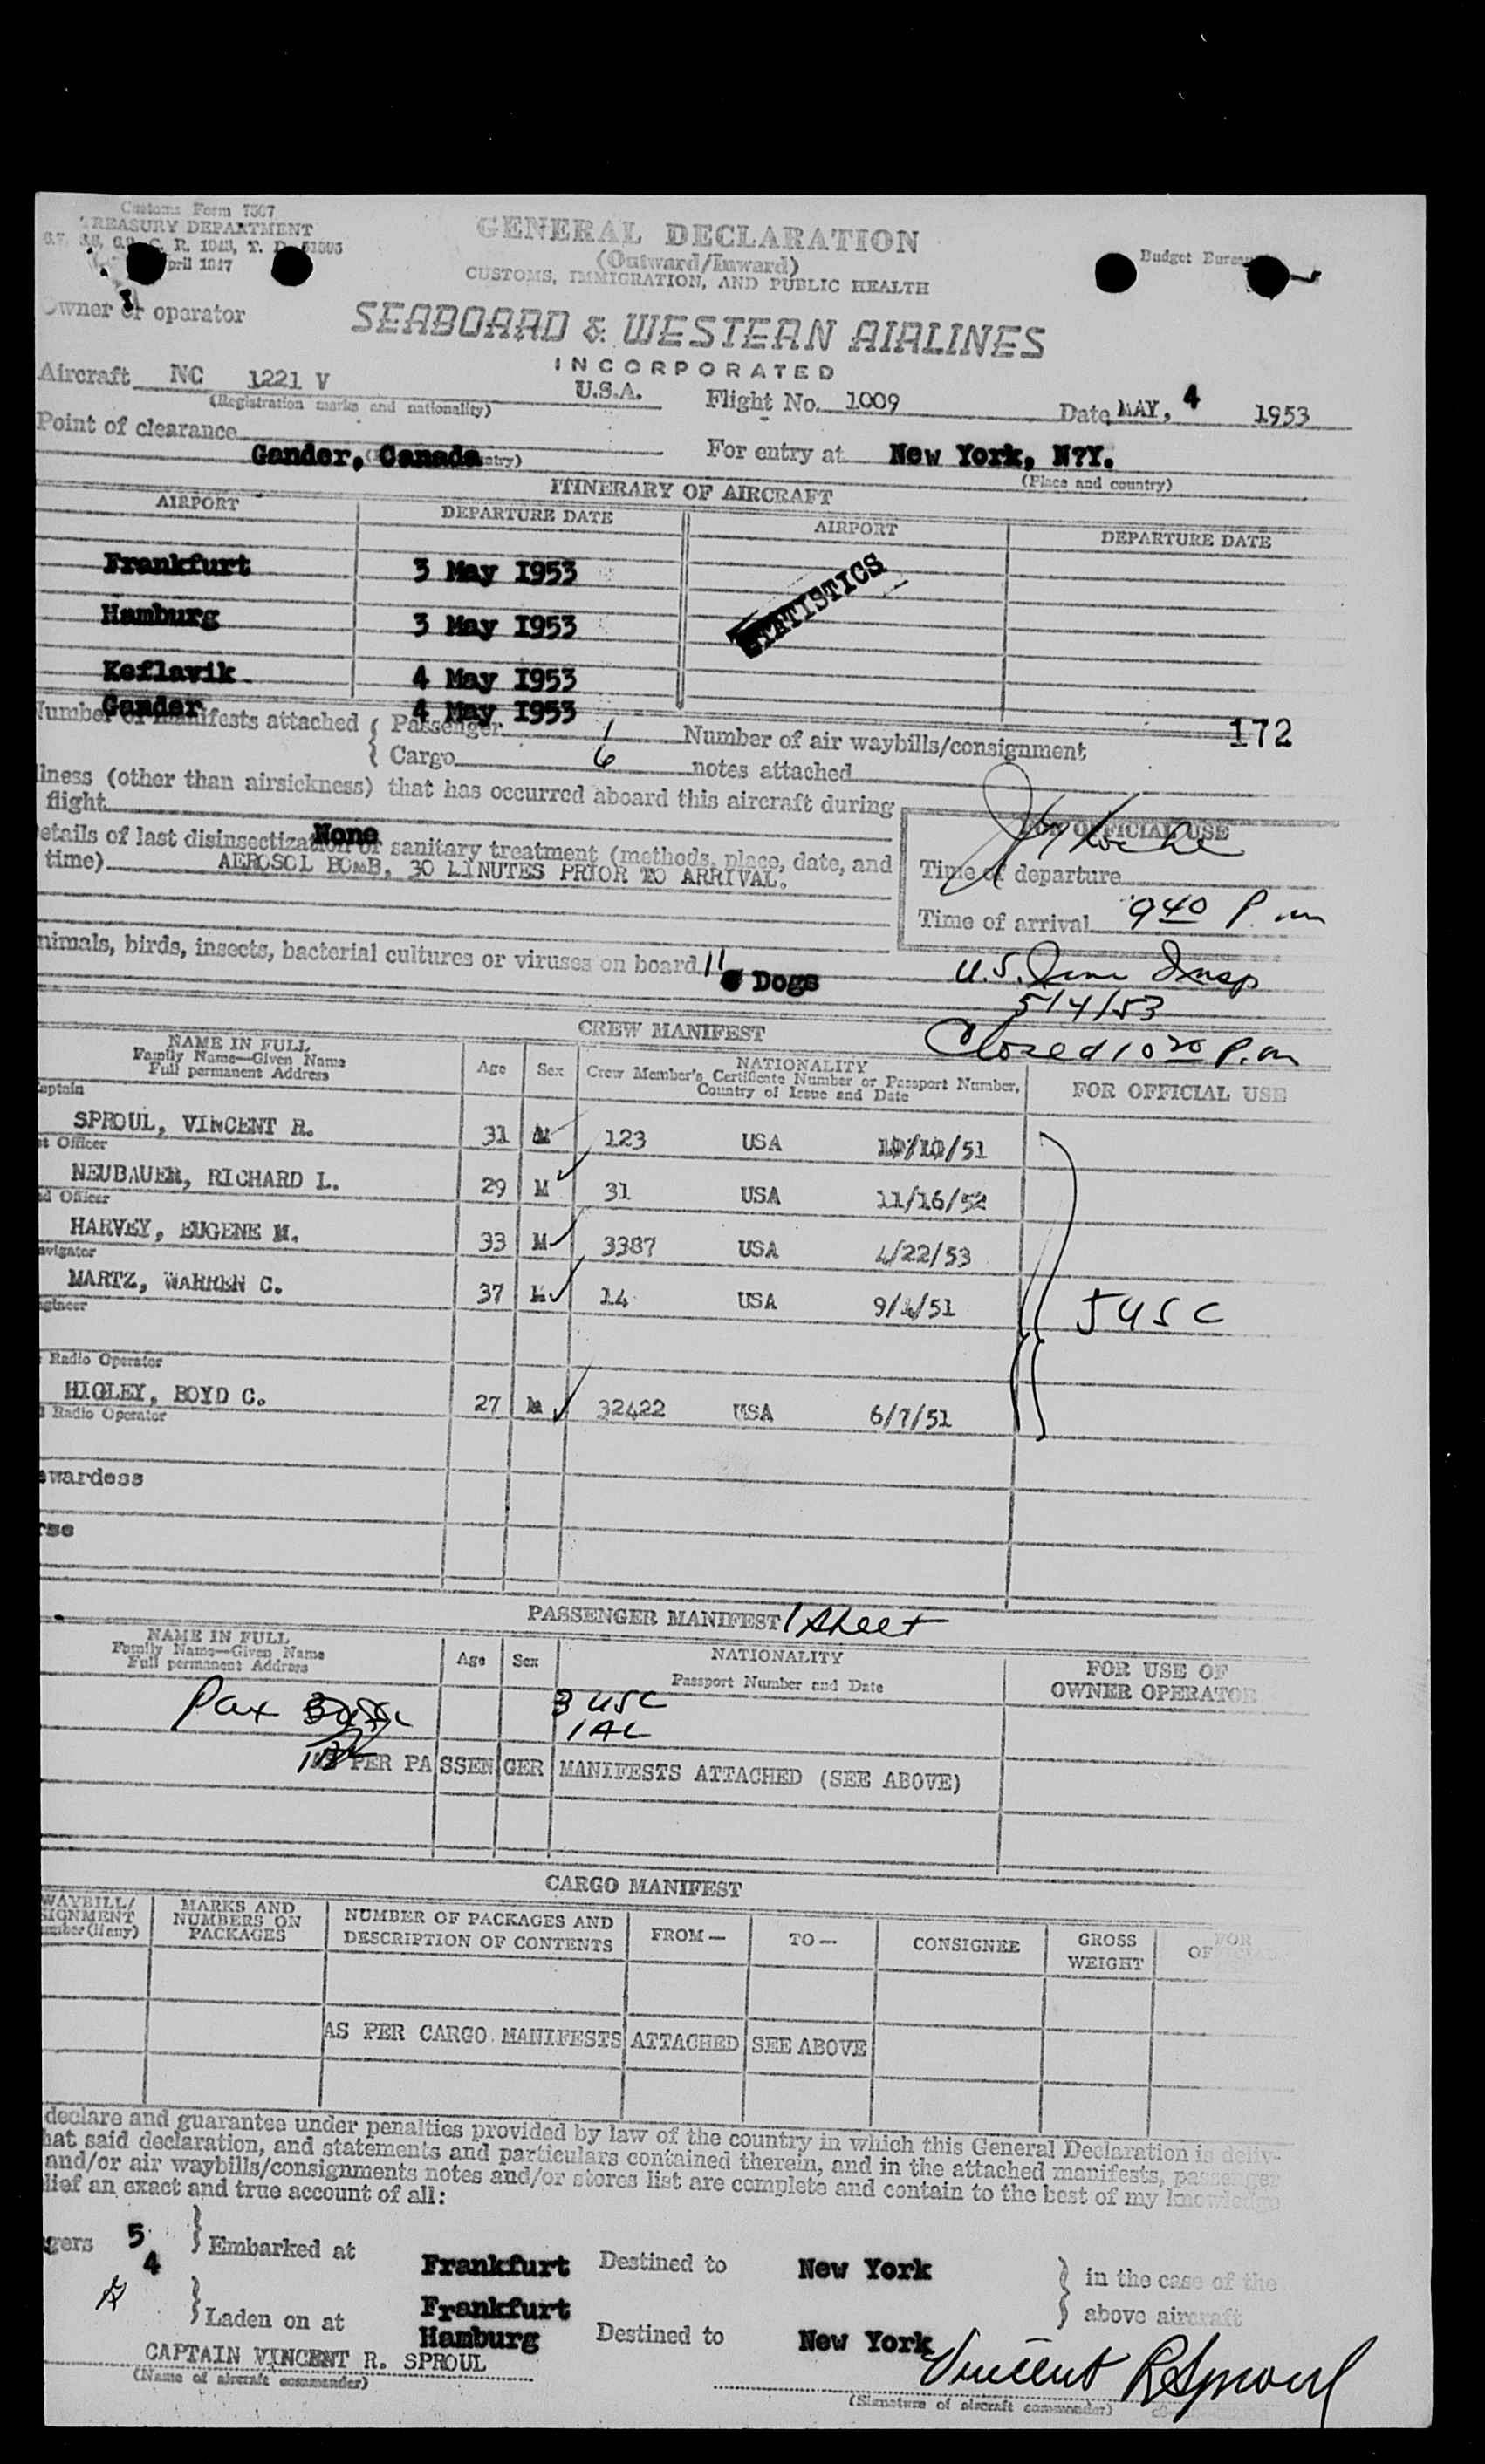 Customs Form 7507
TREASURY DEPARTMENT
April 1947
GENERAL DECLARATION
(Outward/Inward)
CUSTOMS, IMMIGRATION, AND PUBLIC HEALTH
Budget Bureau
Owner or operator
SEABOARD & WESTERN AIRLINES
INCORPORATED
Aircraft NC 1221 V U.S.A. Flight No. 1009 Date MAY, 4 1953
(Registration marks and nationality)
Point of clearance Gander, Canada For entry at New York, N?Y.
(Place and country)
ITINERARY OF AIRCRAFT
AIRPORT DEPARTURE DATE AIRPORT DEPARTURE DATE
Frankfurt 3 May I953
STATISTICS
Hamburg 3 May I953
Keflavik 4 May I953
Gander 4 May I953
172
Number of manifests attached { Passenger 1 Number of air waybills/consignment
Cargo 6 notes attached
llness (other than airsickness) that has occurred aboard this aircraft during
flight None
FOR OFFICIAL USE
etails of last disinsectization or sanitary treatment (methods, place, date, and
time) AEROSOL BOMB, 30 LINUTES PRIOR TO ARRIVAL.
Time of departure
Time of arrival 940 P.m
nimals, birds, insects, bacterial cultures or viruses on board 11 Dogs
U.S. Imm Insp
5/4/53
Closed 1020 P.m
CREW MANIFEST
NAME IN FULL
Family Name—Given Name
Full permanent Address
Age Sex
NATIONALITY
Crew Member's Certificate Number or Passport Number,
Country of Issue and Date
FOR OFFICIAL USE
aptain
SPROUL, VINCENT R. 31 M 123 USA 10/10/51
st Officer
NEUBAUER, RICHARD L. 29 M 31 USA 11/16/52
nd Officer
HARVEY, EUGENE M. 33 M 3387 USA 4/22/53
avigator
MARTZ, WARREN C. 37 M 14 USA 9/4/51
5 USC
ngineer
Radio Operator
HIGLEY, BOYD C. 27 M 32422 USA 6/7/51
d Radio Operator
ewardess
rse
PASSENGER MANIFEST 1 Sheet
NAME IN FULL
Family Name—Given Name
Full permanent Address
Age Sex
NATIONALITY
Passport Number and Date
FOR USE OF
OWNER OPERATOR
Pax 3 USC
1 AL
PER PASSENGER MANIFESTS ATTACHED (SEE ABOVE)
CARGO MANIFEST
WAYBILL/
SIGNMENT
umber (if any)
MARKS AND
NUMBERS ON
PACKAGES
NUMBER OF PACKAGES AND
DESCRIPTION OF CONTENTS
FROM— TO— CONSIGNEE
GROSS
WEIGHT
FOR
OFFICIAL
AS PER CARGO MANIFESTS ATTACHED SEE ABOVE
declare and guarantee under penalties provided by law of the country in which this General Declaration is deliv-
hat said declaration, and statements and particulars contained therein, and in the attached manifests, passenger
and/or air waybills/consignments notes and/or stores list are complete and contain to the best of my knowledge
lief an exact and true account of all:
gers 5 } Embarked at Frankfurt Destined to New York } in the case of the
4
above aircraft
} Laden on at Frankfurt
Hamburg Destined to New York
CAPTAIN VINCENT R. SPROUL
(Name of aircraft commander)
Vincent R Sproul
(Signature of aircraft commander)